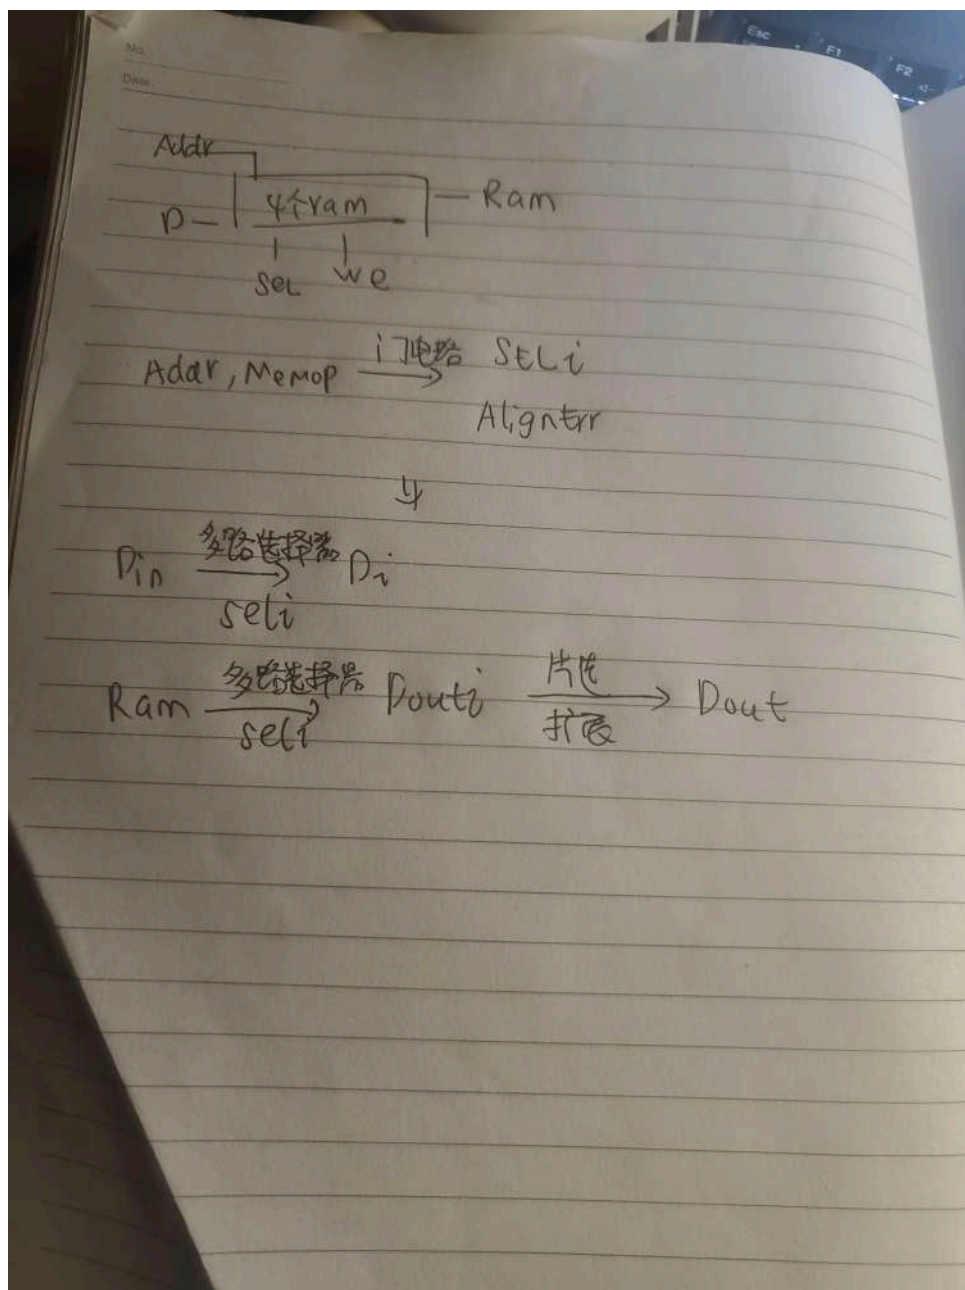 Esc F1 F2
No.
Date.
Addr
D 4个ram Ram
sel we
Addr, Memop i门电路 SELi
AlignErr
Din 多路选择器 Di
seli
Ram 多路选择器 Douti 片选 Dout
seli 扩展